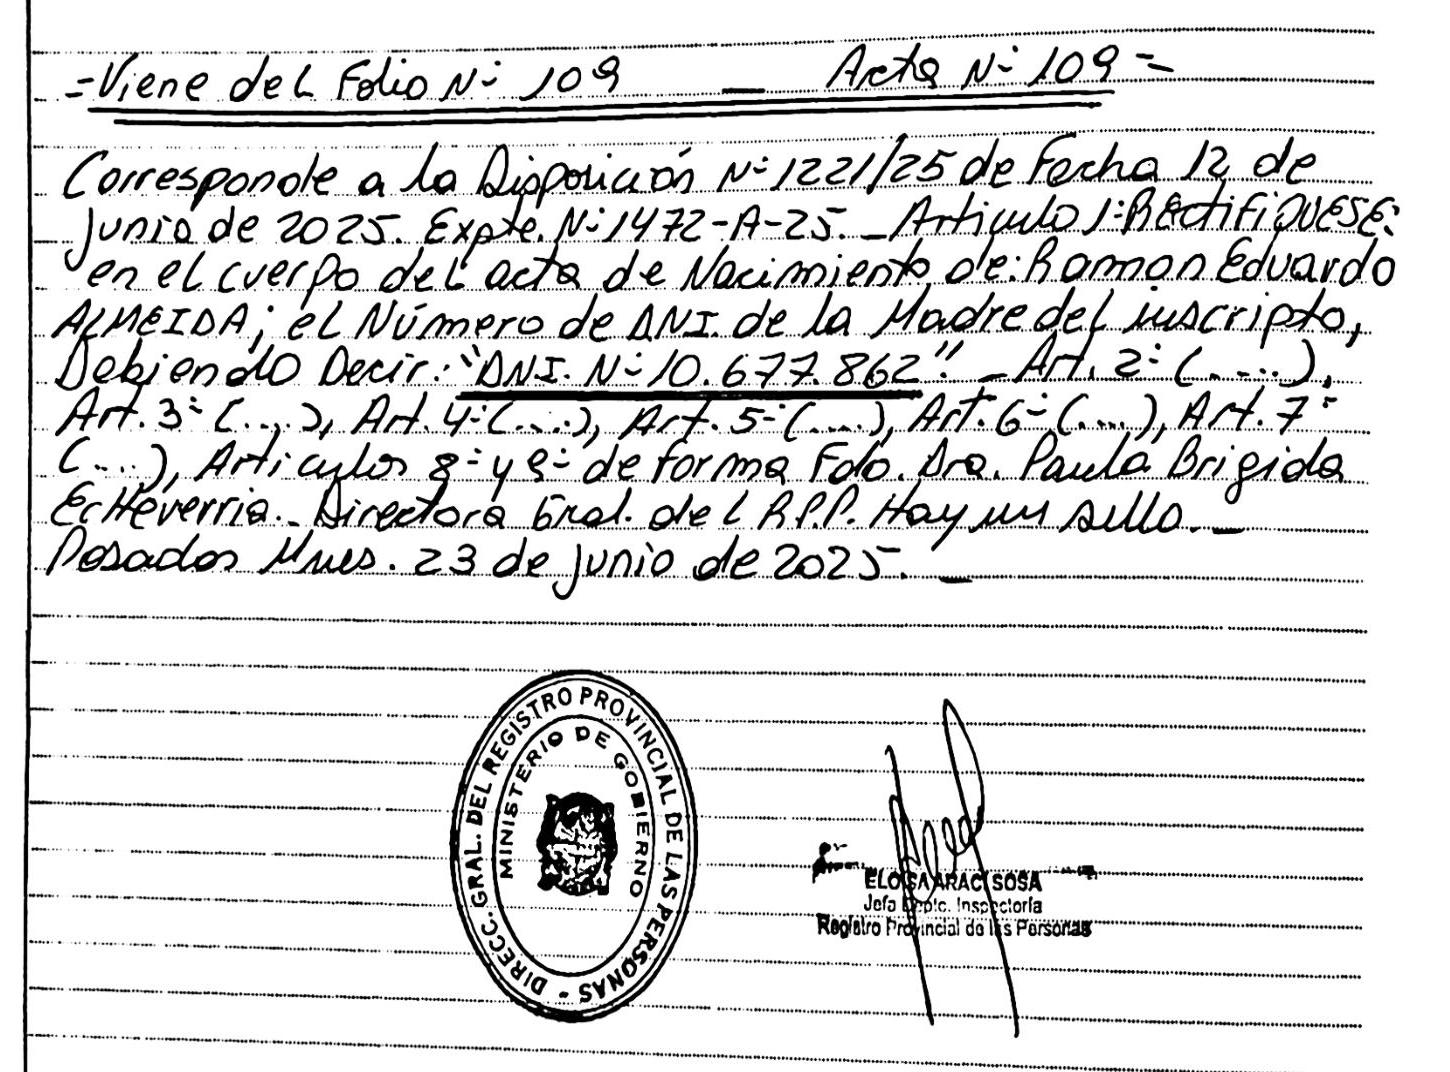 =Viene del Folio Nº 109 — Acta Nº 109=
Corresponde a la Disposición Nº 1221/25 de Fecha 12 de
junio de 2025. Expte. Nº 1472-A-25. _ Articulo 1º: RECtiFiQUESE:
en el cuerpo del acta de Nacimiento de: Ramon Eduardo
ALMEIDA; el Número de DNI. de la Madre del inscripto,
Debiendo Decir: "DNI. Nº 10.677.862". _ Art. 2º (.....),
Art. 3º (....), Art. 4º (....), Art. 5º (....), Art. 6º (....), Art. 7º
(....), Articulos 8º y 9º de forma Fdo. Dra. Paula Brigida
EcHeverria._ Directora Gral. del R.P.P. Hay un sello. _
Posadas Mnes. 23 de junio de 2025. _
DIRECC. GRAL. DEL REGISTRO PROVINCIAL DE LAS PERSONAS -
MINISTERIO DE GOBIERNO
ELOISA ARACI SOSA
Jefa Dpto. Inspectoría
Registro Provincial de las Personas